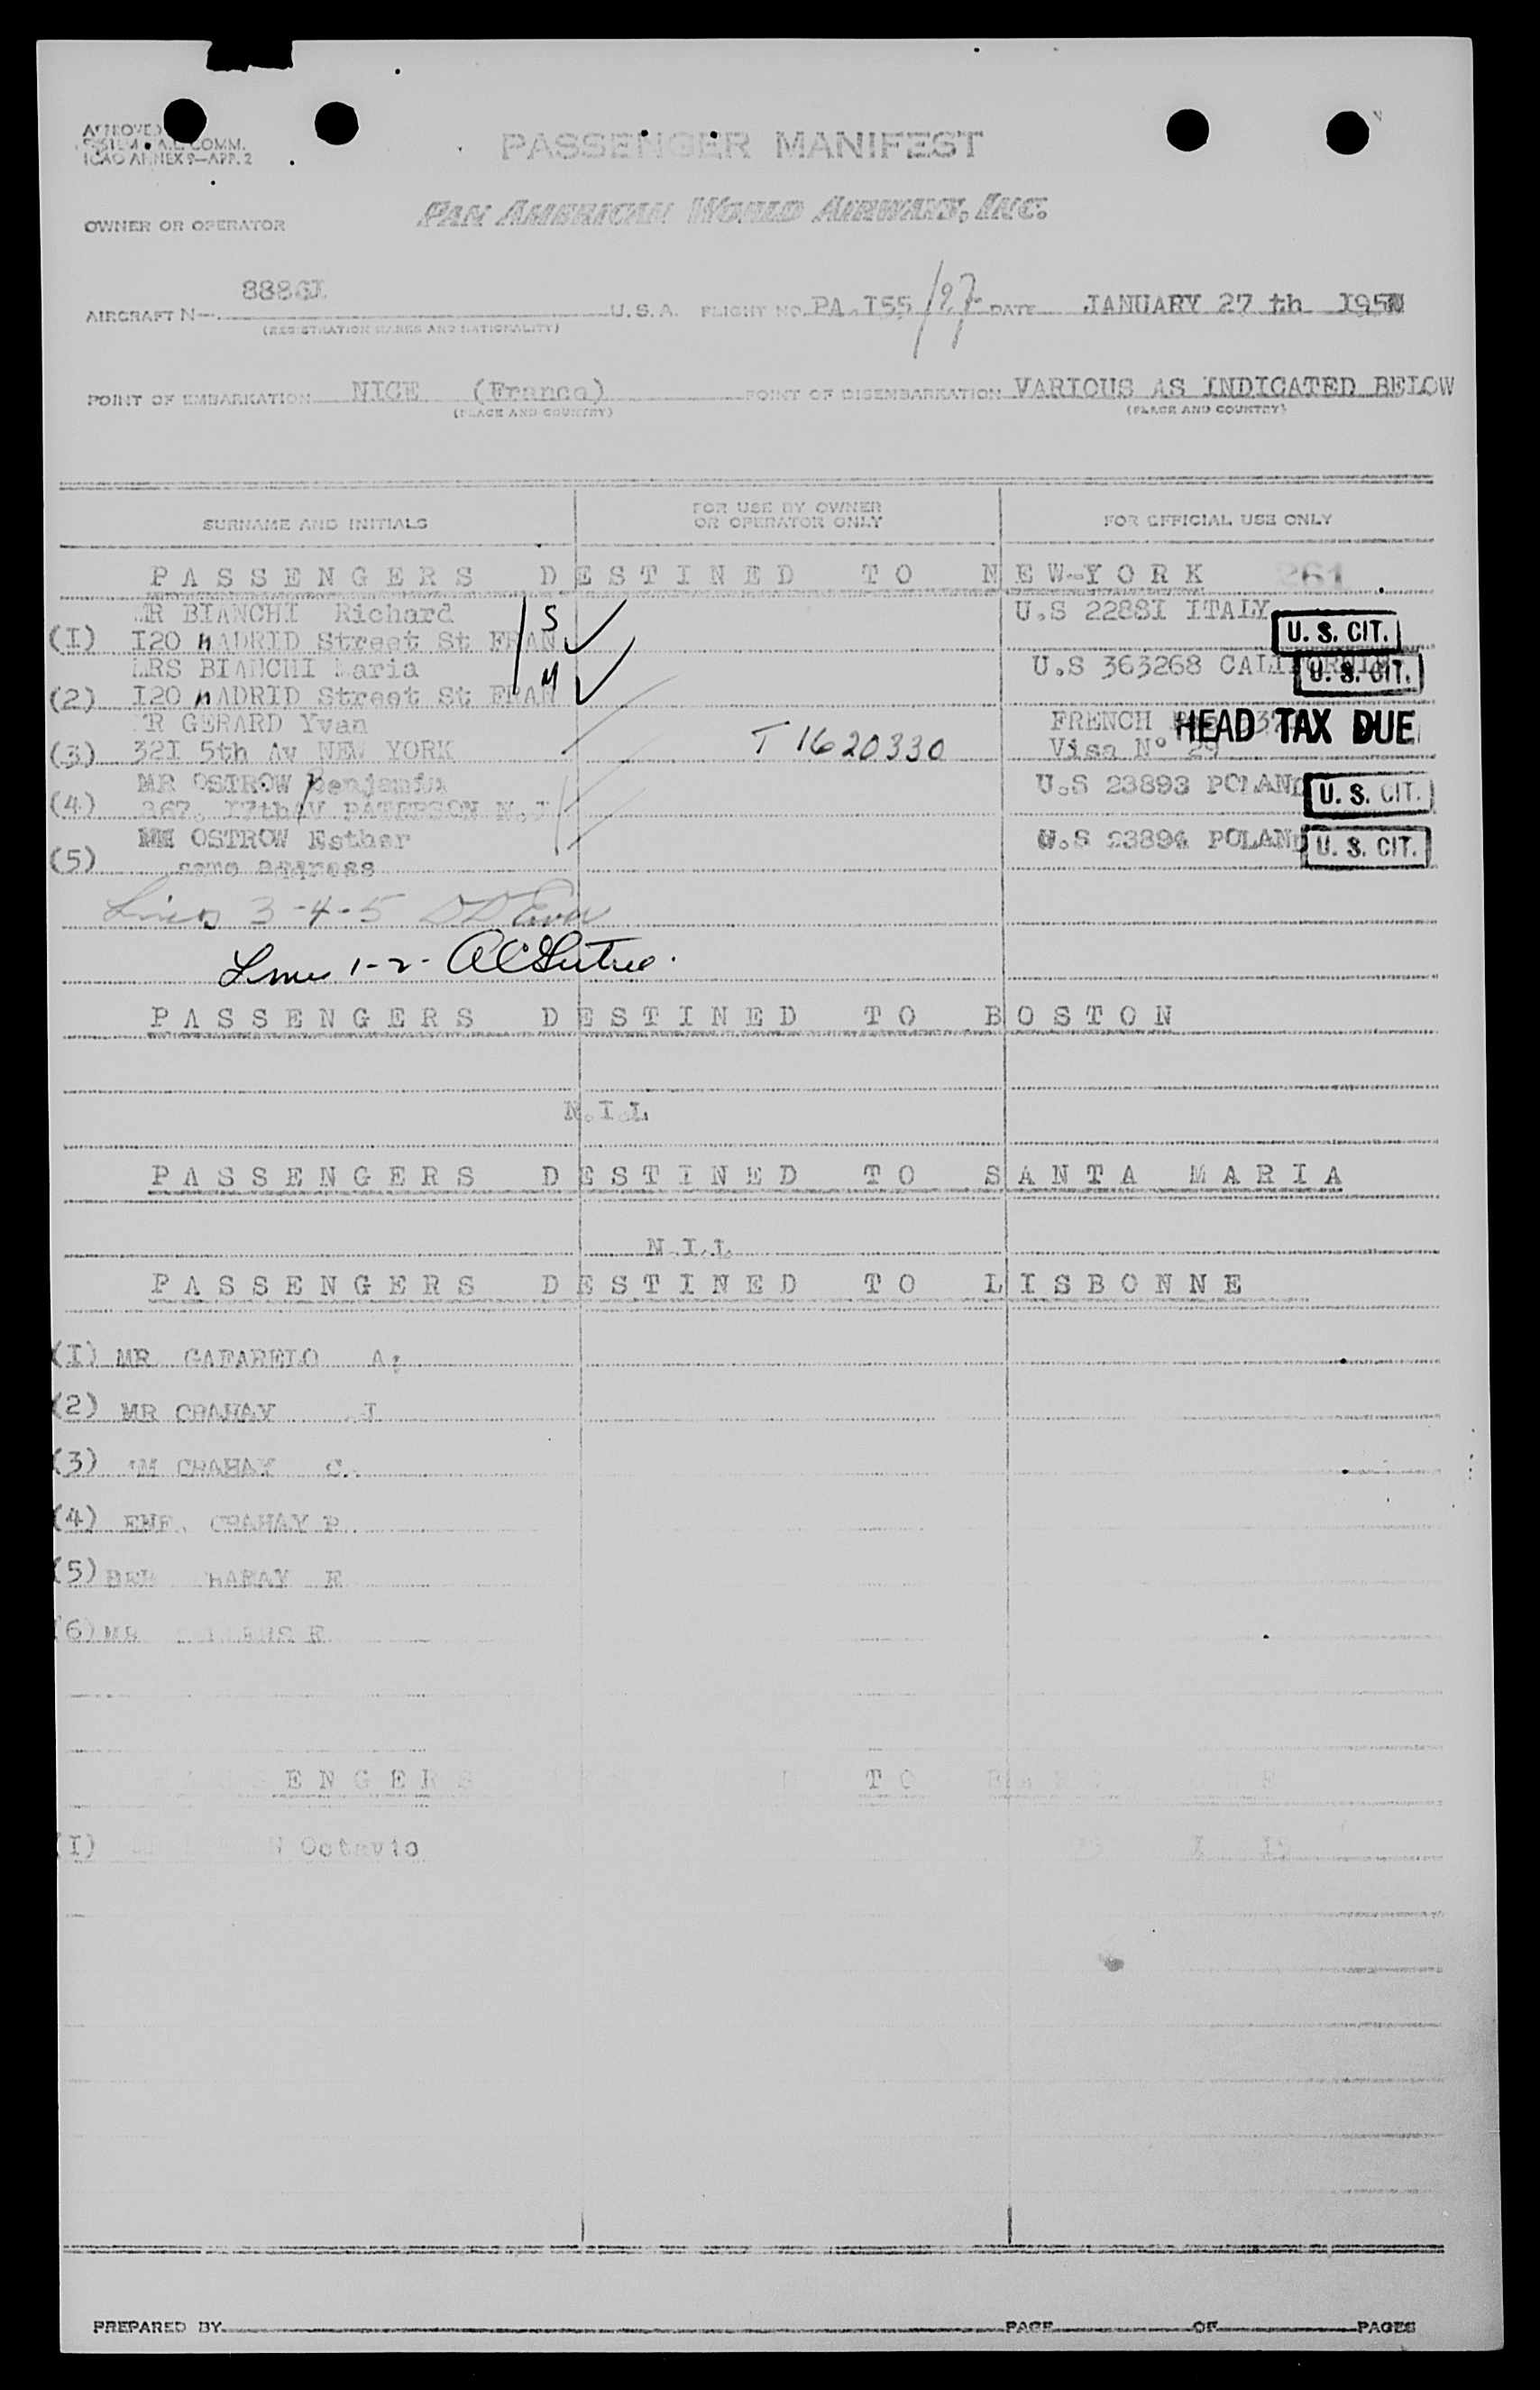 PASSENGER MANIFEST
ICAO ANNEX 9—APP. 2
OWNER OR OPERATOR PAN AMERICAN WORLD AIRWAYS, INC.
AIRCRAFT N— U.S.A. FLIGHT NO. PA.I55/27 DATE JANUARY 27 th
(REGISTRATION MARKS AND NATIONALITY)
POINT OF EMBARKATION NICE (France) POINT OF DISEMBARKATION VARIOUS AS INDICATED BELOW
(PLACE AND COUNTRY) (PLACE AND COUNTRY)
SURNAME AND INITIALS FOR USE BY OWNER OR OPERATOR ONLY FOR OFFICIAL USE ONLY
PASSENGERS DESTINED TO NEW-YORK 261
MR BIANCHI Richard S U.S 2288I ITALY U. S. CIT.
(I) I20 MADRID Street St FRAN
MRS BIANCHI Maria M U.S 363268 CALIFORNIA U. S. CIT.
(2) I20 MADRID Street St FRAN
MR GERARD Yvan FRENCH HEAD TAX DUE
(3) 32I 5th Av NEW YORK T 1620330 Visa N° 29
MR OSTROW Benjamin U.S 23893 POLAND U. S. CIT.
(4) 367. I7th AV PATERSON N.J
OSTROW Esther U.S 23894 POLAND U. S. CIT.
(5) same address
Lines 3-4-5
Lines 1-2-
PASSENGERS DESTINED TO BOSTON
N.I.L
PASSENGERS DESTINED TO SANTA MARIA
N.I.L
PASSENGERS DESTINED TO LISBONNE
(I) MR GAFARELO A;
(2) MR CRAHAY J
(3) CRAHAY C.
(4) CRAHAY P
(5) E
(6) MR E
ENGERS TO
(I) Octavio
PREPARED BY PAGE OF PAGES